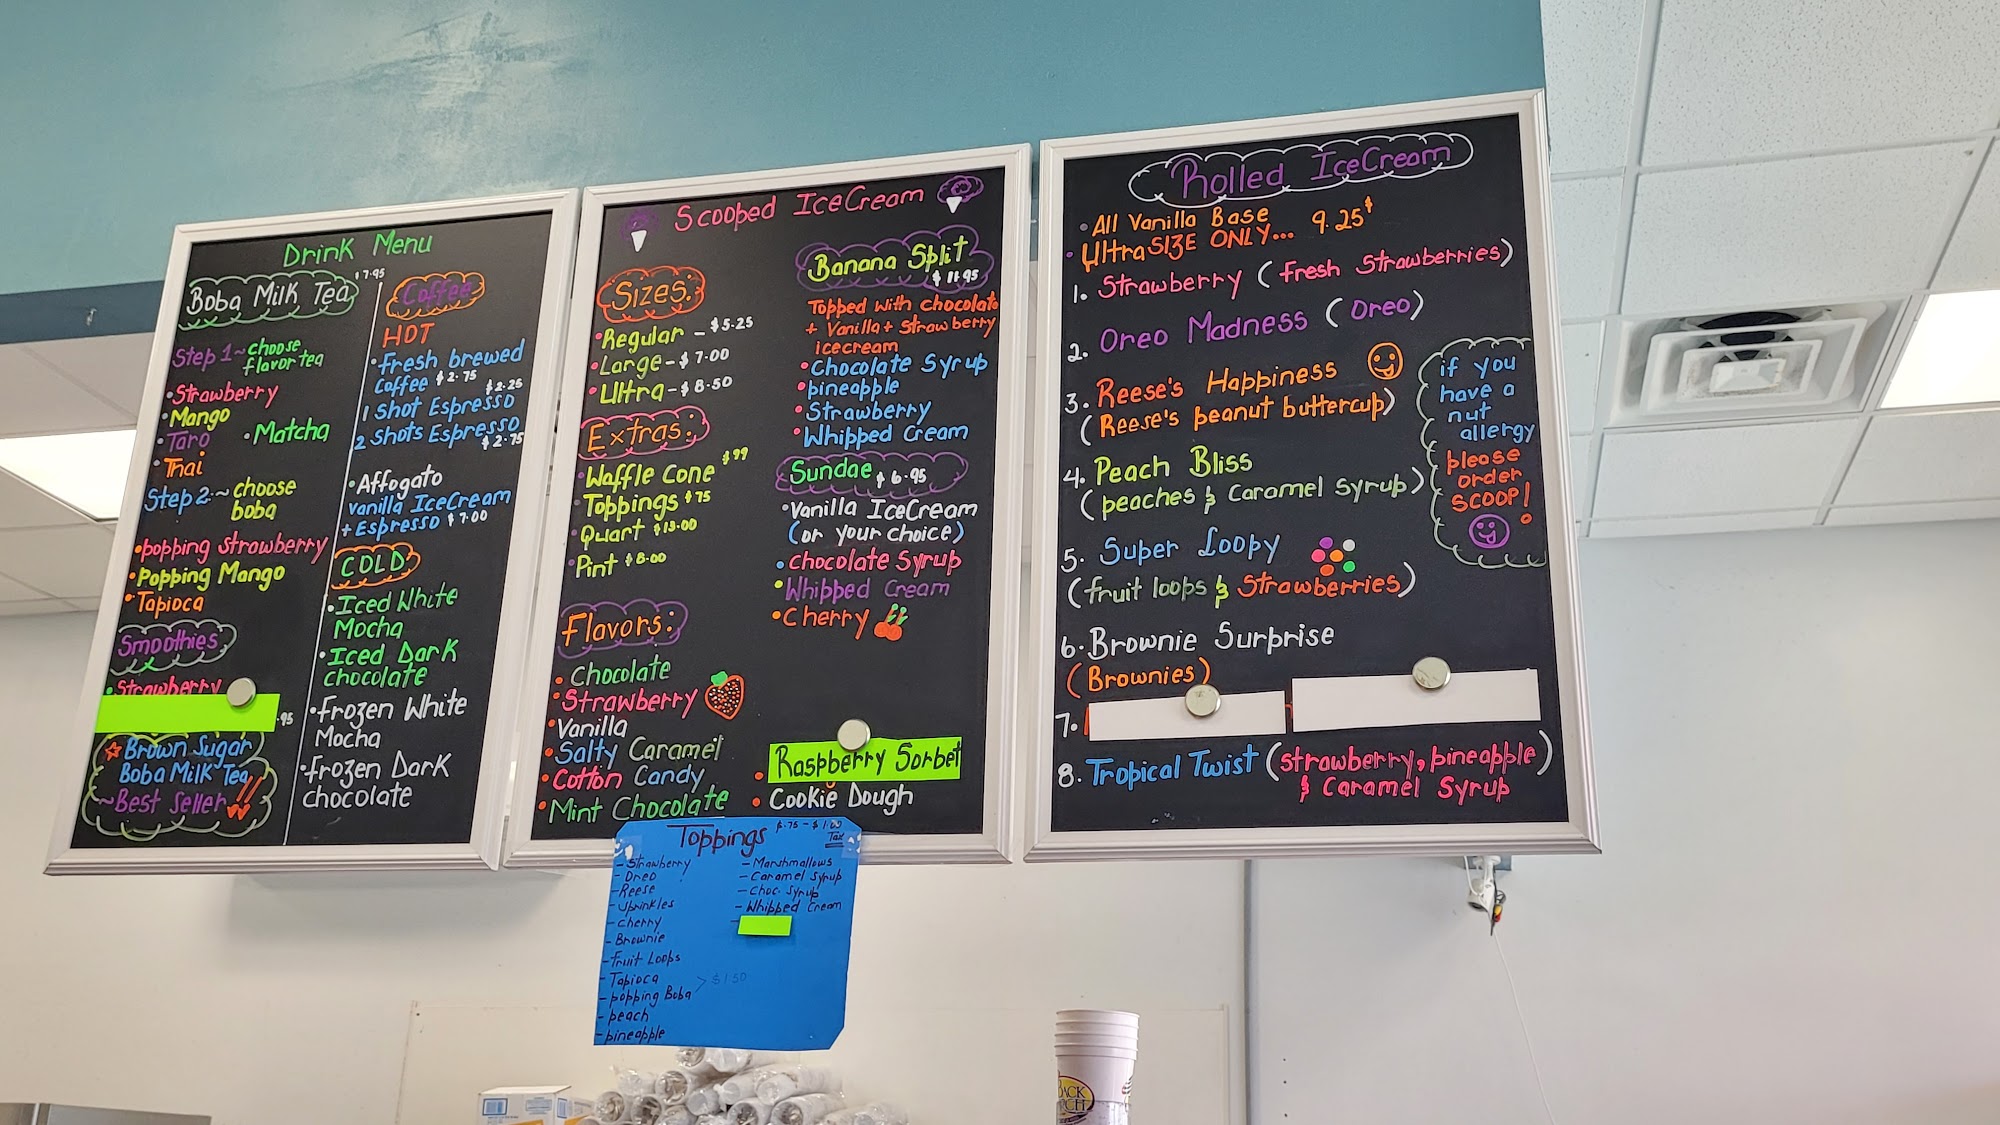 Drink Menu
Boba Milk Tea $7.95
Step 1~ choose
flavor tea
•Strawberry
•Mango
•Taro •Matcha
•Thai
Step 2~ choose
boba
•popping strawberry
•Popping Mango
•Tapioca
Smoothies
•Strawberry
.95
Brown Sugar
Boba Milk Tea
~Best Seller
Coffee
HOT
•Fresh brewed
Coffee $2.75
$2.25
1 Shot Espresso
2 Shots Espresso
$2.75
•Affogato
vanilla IceCream
+ Espresso $7.00
COLD
•Iced White
Mocha
•Iced Dark
chocolate
•frozen White
Mocha
•frozen Dark
chocolate
Scooped IceCream
Sizes:
•Regular - $5.25
•Large - $7.00
•Ultra - $8.50
Extras:
•Waffle Cone $99
•Toppings $75
•Quart $13.00
•Pint $8.00
Flavors:
•Chocolate
•Strawberry
•Vanilla
•Salty Caramel
•Cotton Candy
•Mint Chocolate
Banana Split
$11.95
Topped with chocolate
+ Vanilla + Strawberry
icecream
•Chocolate Syrup
•pineapple
•Strawberry
•Whipped Cream
Sundae $6.95
•Vanilla IceCream
(or your choice)
•chocolate Syrup
•Whipped Cream
•Cherry
•Raspberry Sorbet
•Cookie Dough
Toppings $.75 - $1.00
Tax
- Strawberry
- Oreo
- Reese
- Sprinkles
- Cherry
- Brownie
- fruit Loops
- Tapioca
- popping Boba > $1.50
- peach
- pineapple
- Marshmallows
- Caramel Syrup
- Choc. Syrup
- Whipped Cream
-
Rolled IceCream
•All Vanilla Base
•UltraSIZE ONLY... 9.25$
1. Strawberry (fresh Strawberries)
2. Oreo Madness (Oreo)
3. Reese's Happiness
(Reese's peanut buttercup)
4. Peach Bliss
(peaches & Caramel Syrup)
5. Super Loopy
(fruit loops & Strawberries)
6. Brownie Surprise
(Brownies)
7.
8. Tropical Twist (strawberry, pineapple)
& Caramel Syrup
if you
have a
nut
allergy
please
order
SCOOP!